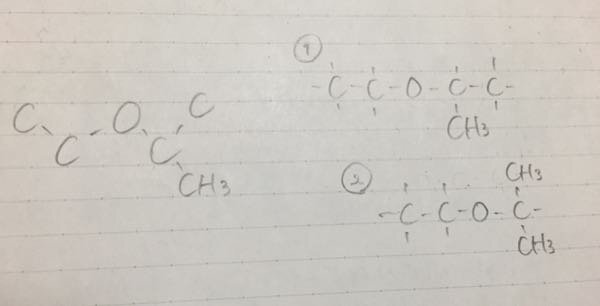 ①
- C - C - O - C - C -
CH3
C C - O C C
CH3
②
CH3
- C - C - O - C -
CH3